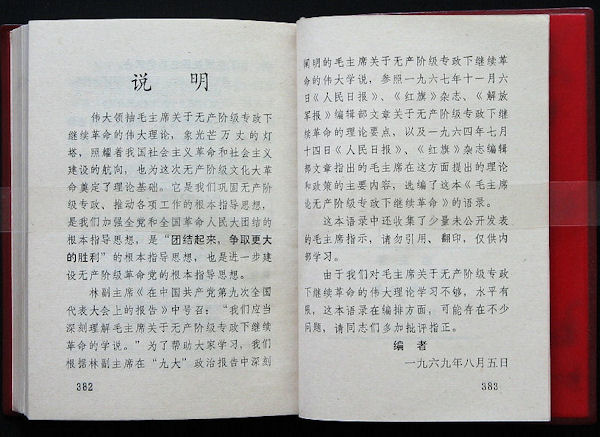 说 明
伟大领袖毛主席关于无产阶级专政下
继续革命的伟大理论，象光芒万丈的灯
塔，照耀着我国社会主义革命和社会主义
建设的航向，也为这次无产阶级文化大革
命奠定了理论基础。它是我们巩固无产阶
级专政、推动各项工作的根本指导思想，
是我们加强全党和全国革命人民大团结的
根本指导思想，是“团结起来，争取更大
的胜利”的根本指导思想，也是进一步建
设无产阶级革命党的根本指导思想。
林副主席《在中国共产党第九次全国
代表大会上的报告》中号召：“我们应当
深刻理解毛主席关于无产阶级专政下继续
革命的学说。”为了帮助大家学习，我们
根据林副主席在“九大”政治报告中深刻
382
阐明的毛主席关于无产阶级专政下继续革
命的伟大学说，参照一九六七年十一月六
日《人民日报》、《红旗》杂志、《解放
军报》编辑部文章关于无产阶级专政下
继续革命的理论要点，以及一九六四年七月
十四日《人民日报》、《红旗》杂志编辑
部文章指出的毛主席在这方面提出的理论
和政策的主要内容，选编了这本《毛主席
论无产阶级专政下继续革命》的语录。
这本语录中还收集了少量未公开发表
的毛主席指示，请勿引用、翻印，仅供内
部学习。
由于我们对毛主席关于无产阶级专政
下继续革命的伟大理论学习不够，水平有
限，这本语录在编排方面，可能存在不少
问题，请同志们多加批评指正。
编 者
一九六九年八月五日
383